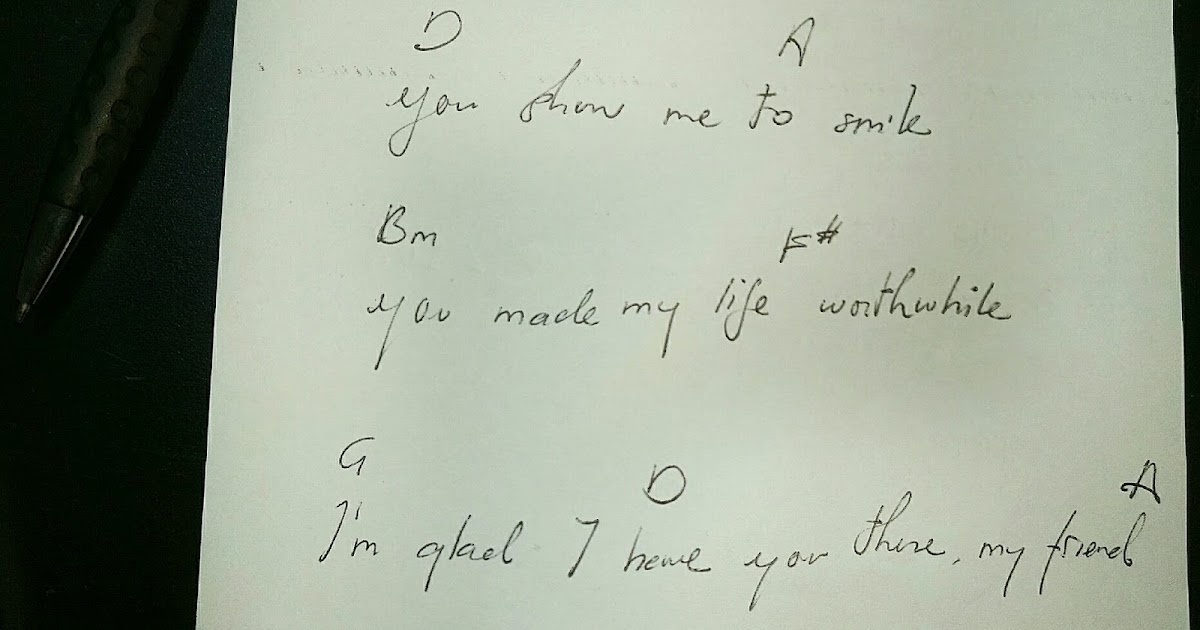 D A
you show me to smile
Bm F#
you made my life worthwhile
G D A
I'm glad I have you there, my friend